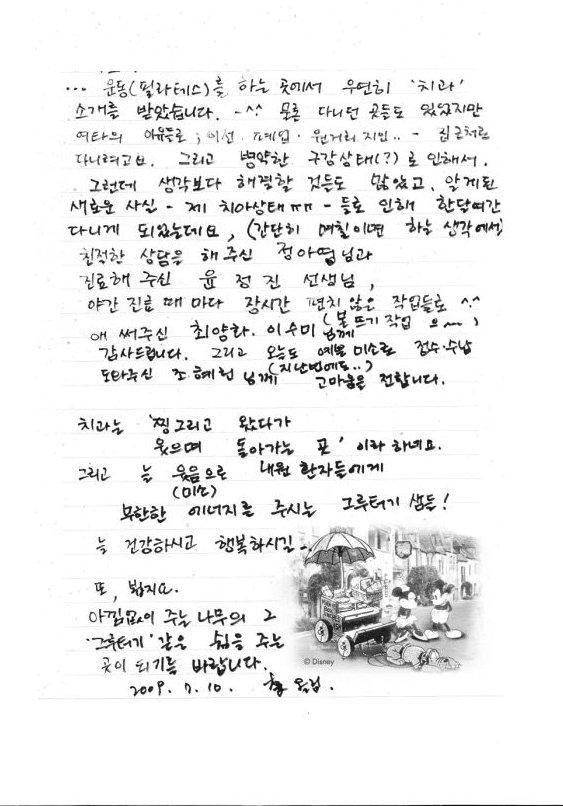 ... 운동(필라테스)를 하는 곳에서 우연히 '치과'
소개를 받았습니다. -^^ 물론 다니던 곳들도 있었지만
여타의 이유들로; 이전. 폐업. 원거리.지인.. - 집근처로
다니려고요. 그리고 병약한 구강상태(?)로 인해서.
그런데 생각보다 해결할 것들도 많았고, 알게된
새로운 사실 - 제 치아상태ㅠㅠ - 들로 인해 한달여간
다니게 되었는데요, (간단히 며칠이면 하는 생각에서)
친절한 상담을 해 주신 정아영님과
진료해 주신 윤정진 선생님,
야간 진료 때 마다 장시간 편치 않은 작업들로 ^^
(본뜨기 작업 으~~)
애 써주신 최양라. 이수미 님께
감사드립니다. 그리고 오늘도 예쁜 미소로 접수·수납
(지난번에도..)
도와주신 조혜현 님께 고마움을 전합니다.
치과는 '찡그리고 왔다가
웃으며 돌아가는 곳' 이라 하네요.
그리고 늘 웃음으로 내원 환자들에게
(미소)
무한한 에너지를 주시는 그루터기 샘들!
늘 건강하시고 행복하시길 -.
또, 뵙지요.
아낌없이 주는 나무의 그
'그루터기' 같은 쉼을 주는
곳이 되기를 바랍니다.
2009. 7. 10.
© Disney